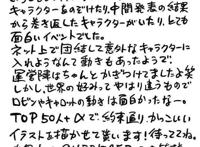 キャラクターもの ぞけたり、中間発表の結果
から巻き返したキャラクターがいたり、とても
面白いイベントでした。
ネット上で団結して意外なキャラクターに
入れようなんて動きもあったようで、
運営陣はちゃんとかぎつけてましたよ笑
しかし、世界の好みってやはり違うもので
ロビンやキャロットの動きは面白かったなー。
TOP50人+αで約束通りかっこいい
イラストを描かせて貰います!待っててね。